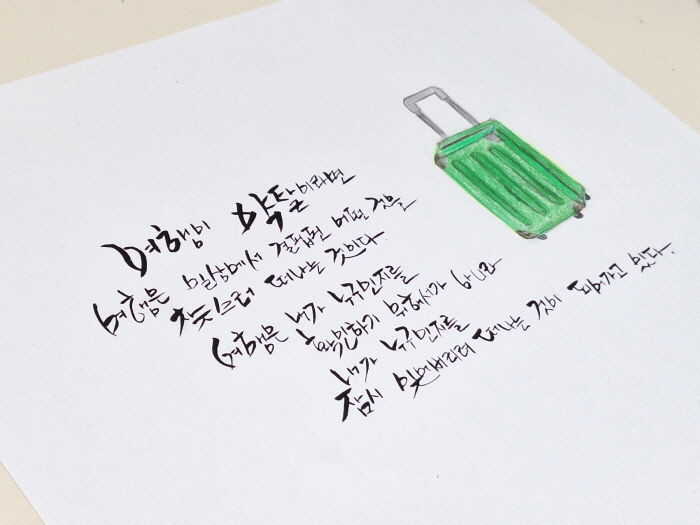 여행이 약탈이라면
여행은 일상에서 결핍된 어떤 것을
찾으러 떠나는 것이다.
여행은 내가 누구인지를
확인하기 위해서가 아니라
내가 누구인지를
잠시 잊어버리러 떠나는 것이 되어가고 있다.